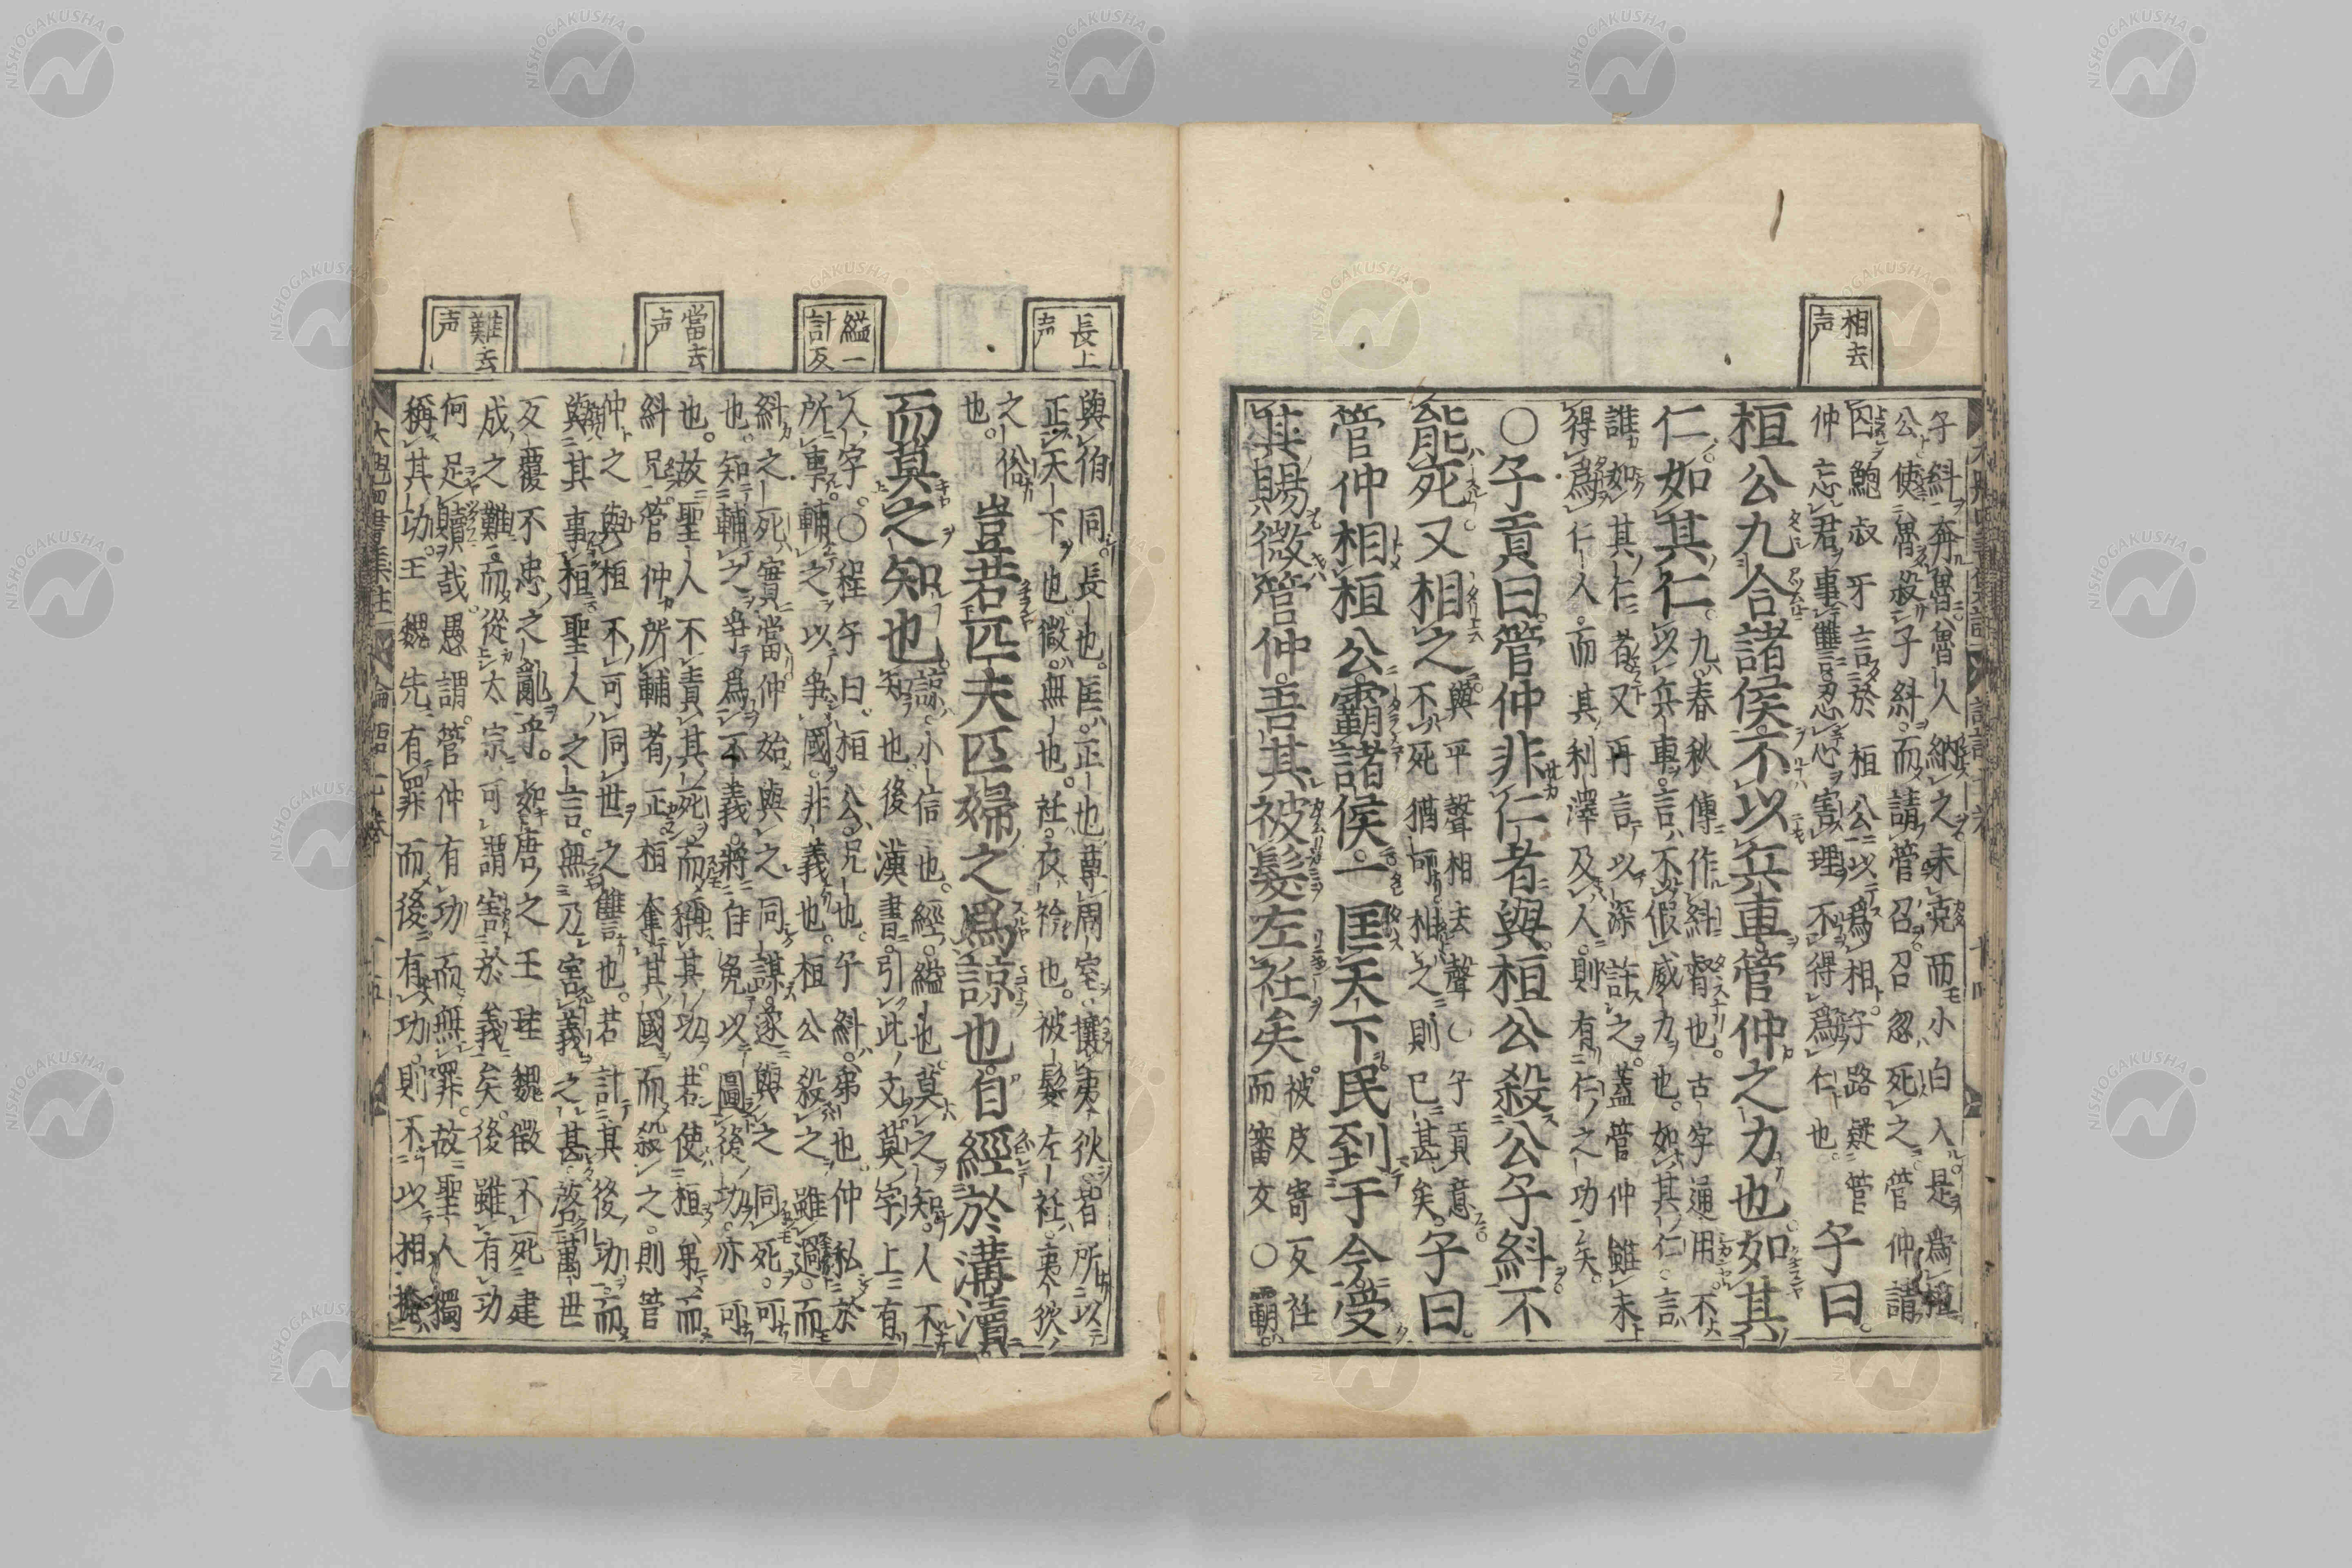 相去
声
子糾奔魯魯人納之未克而小白入是爲桓
公使魯殺子糾而請管召召忽死之管仲請
囚鮑叔牙言於桓公以爲相子路疑管
仲忘君事讐忍心害理不得爲仁也。子曰。
桓公九合諸侯。不以兵車。管仲之力也。如其
仁。如其仁。
九春秋傳作糾督也。古字通用。不
以兵車。言不假威力也。如其仁。言
誰如其仁者又再言以深許之。蓋管仲雖未
得爲仁人。而其利澤及人。則有仁之功矣。
○子貢曰。管仲非仁者與。桓公殺公子糾。不
能死。又相之。
與平聲相去聲○子貢意
不死猶可相之則已甚矣。
子曰。
管仲相桓公。霸諸侯。一匡天下。民到于今受
其賜。微管仲。吾其被髮左衽矣。
被皮寄反衽
而審文○霸
長上
声
縊一
計反
當去
声
難去
声
與伯同長也。匡正也尊周室攘夷狄皆所以
正天下也微無也。衽衣衿也。被髮左衽。夷狄
之俗
也。
豈若匹夫匹婦之爲諒也。自經於溝瀆
而莫之知也。
諒小信也。經縊也莫之知。人不
知也後漢書引此文莫字上有
人字。○程子曰。桓公兄也。子糾弟也仲私於
所事。輔之以爭國。非義也。桓公殺之雖過。而
糾之死實當仲始與之同謀。遂與之同死。可
也。知輔之爭爲不義。將自免以圖後功。亦可
也。故聖人不責其死而稱其功。若使桓弟而
糾兄管仲所輔者正桓奪其國而殺之。則管
仲之與桓不可同世之讐也。若計其後功而
與其事桓聖人之言。無乃害義之甚。啓萬世
反覆不忠之亂乎。如唐之王珪魏徵不死建
成之難而從太宗可謂害於義矣。後雖有功
何足贖哉。愚謂。管仲有功而無罪。故聖人獨
稱其功。王魏先有罪而後有功。則不以相掩
大魁四書集註
論語七卷
十五
NISHOGAKUSHA